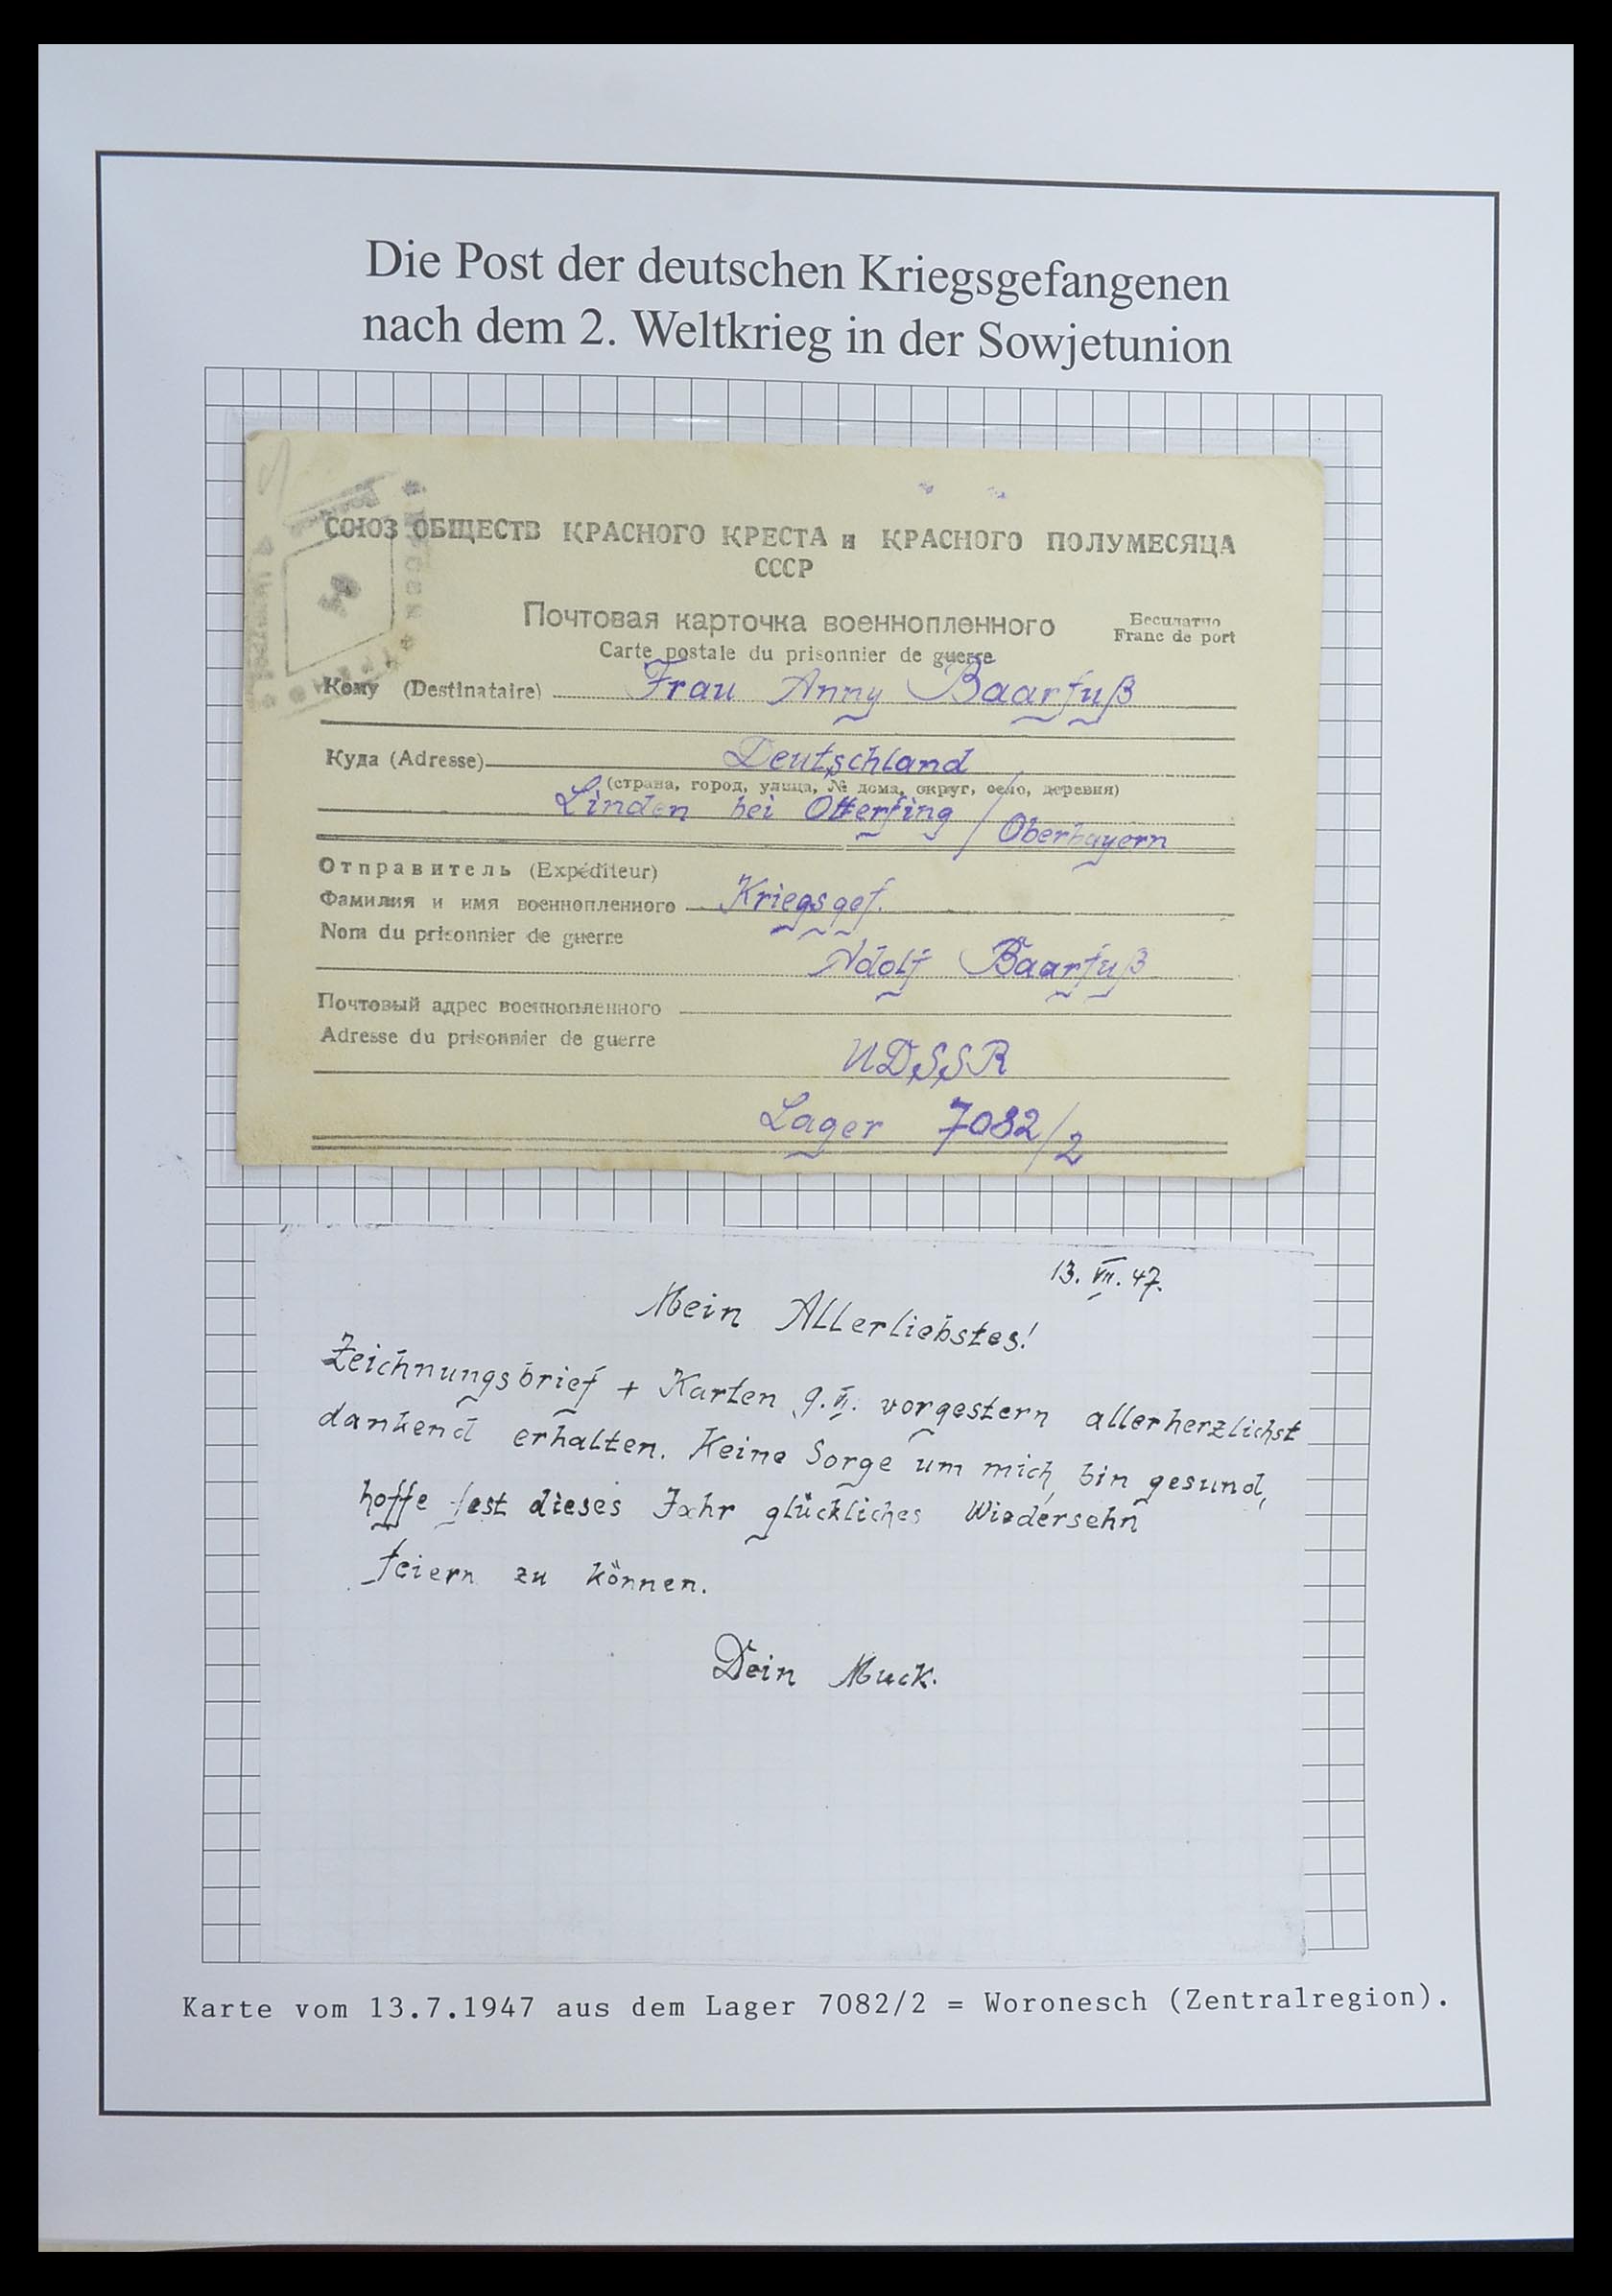 Die Post der deutschen Kriegsgefangenen
nach dem 2. Weltkrieg in der Sowjetunion
СОЮЗ ОБЩЕСТВ КРАСНОГО КРЕСТА и КРАСНОГО ПОЛУМЕСЯЦА
СССР
Почтовая карточка военнопленного
Бесплатно
Franc de port
Carte postale du prisonnier de guerre
Кому (Destinataire) Frau Anny Baarfuß
Куда (Adresse) Deutschland
(страна, город, улица, № дома, округ, село, деревня)
Linden bei Otterfing / Oberbayern
Отправитель (Expéditeur)
Фамилия и имя военнопленного Kriegsgef.
Nom du prisonnier de guerre
Adolf Baarfuß
Почтовый адрес военнопленного
Adresse du prisonnier de guerre
UDSSR
Lager 7082/2
13. VII. 47.
Mein Allerliebstes!
Zeichnungsbrief + Karten 9.VI. vorgestern allerherzlichst
dankend erhalten. Keine Sorge um mich, bin gesund,
hoffe fest dieses Jahr glückliches Wiedersehn
feiern zu können.
Dein Muck.
Karte vom 13.7.1947 aus dem Lager 7082/2 = Woronesch (Zentralregion).